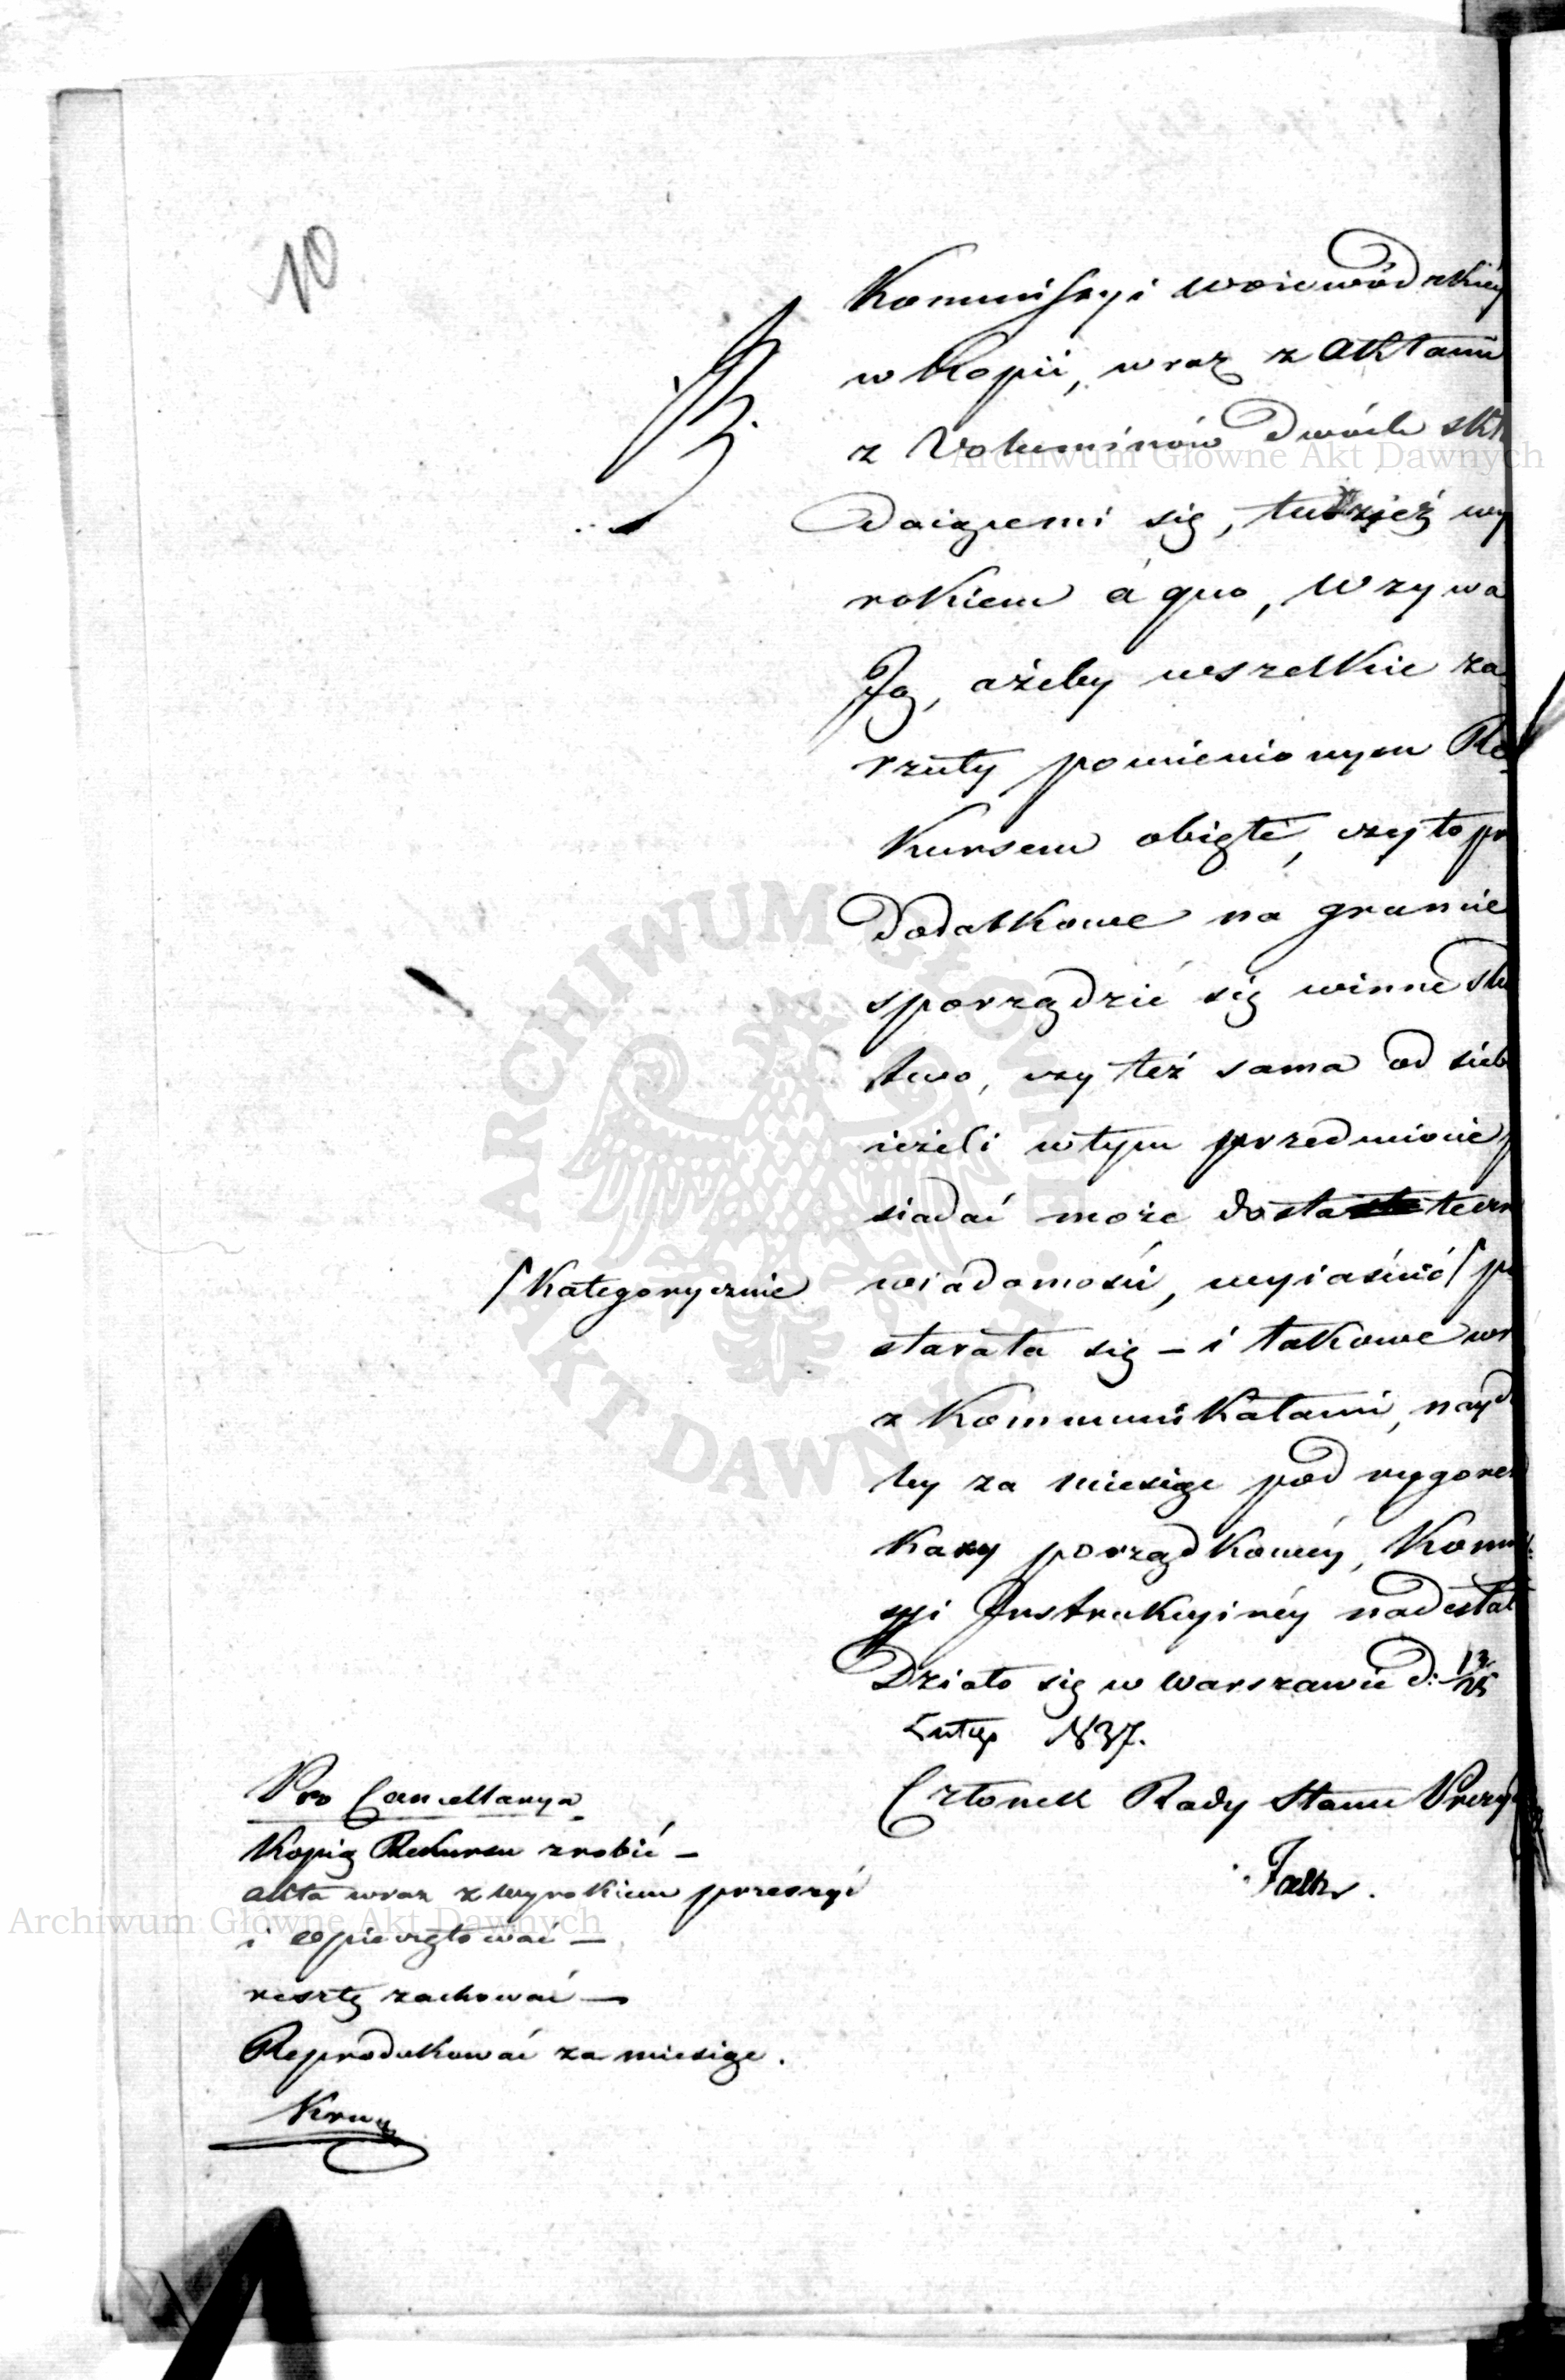 10
Kommissyi Woiewódzkiéy
w kopii, wraz z Aktami
z Voluminów dwóch skła
daiącemi się, tudzież wy
rokiem á quo, Wzywa
Ją, ażeby wszelkie za
rzuty pomienionym Re
kursem obięte, czyto pr
dodatkowe na gruncie
sporządzić się winne śle
two, czy też sama od sieb
ieżeli w tym przedmiocie p
siadać może dostateczn
/Kategorycznie
wiadomość, wyiaśnić/ p
starała się – i takowe wr
z Kommunikatami, nayd
ley za miesiąc pod rygorem
kary porządkowéy, Kommi
syi Instrukcyinéy nadesłał
Działo się w Warszawie d: 13/25
Lutego 1837.
Członek Rady Stanu Prezyd
Pro Cancellarya
Kopią Rekursu zrobić –
akta wraz z wyrokiem przeszyć
i opieczętować –
resztę zachować –
Reprodukować za miesiąc.
Archiwum Główne Akt Dawnych
ARCHIWUM GŁÓWNE AKT DAWNYCH
Archiwum Główne Akt Dawnych